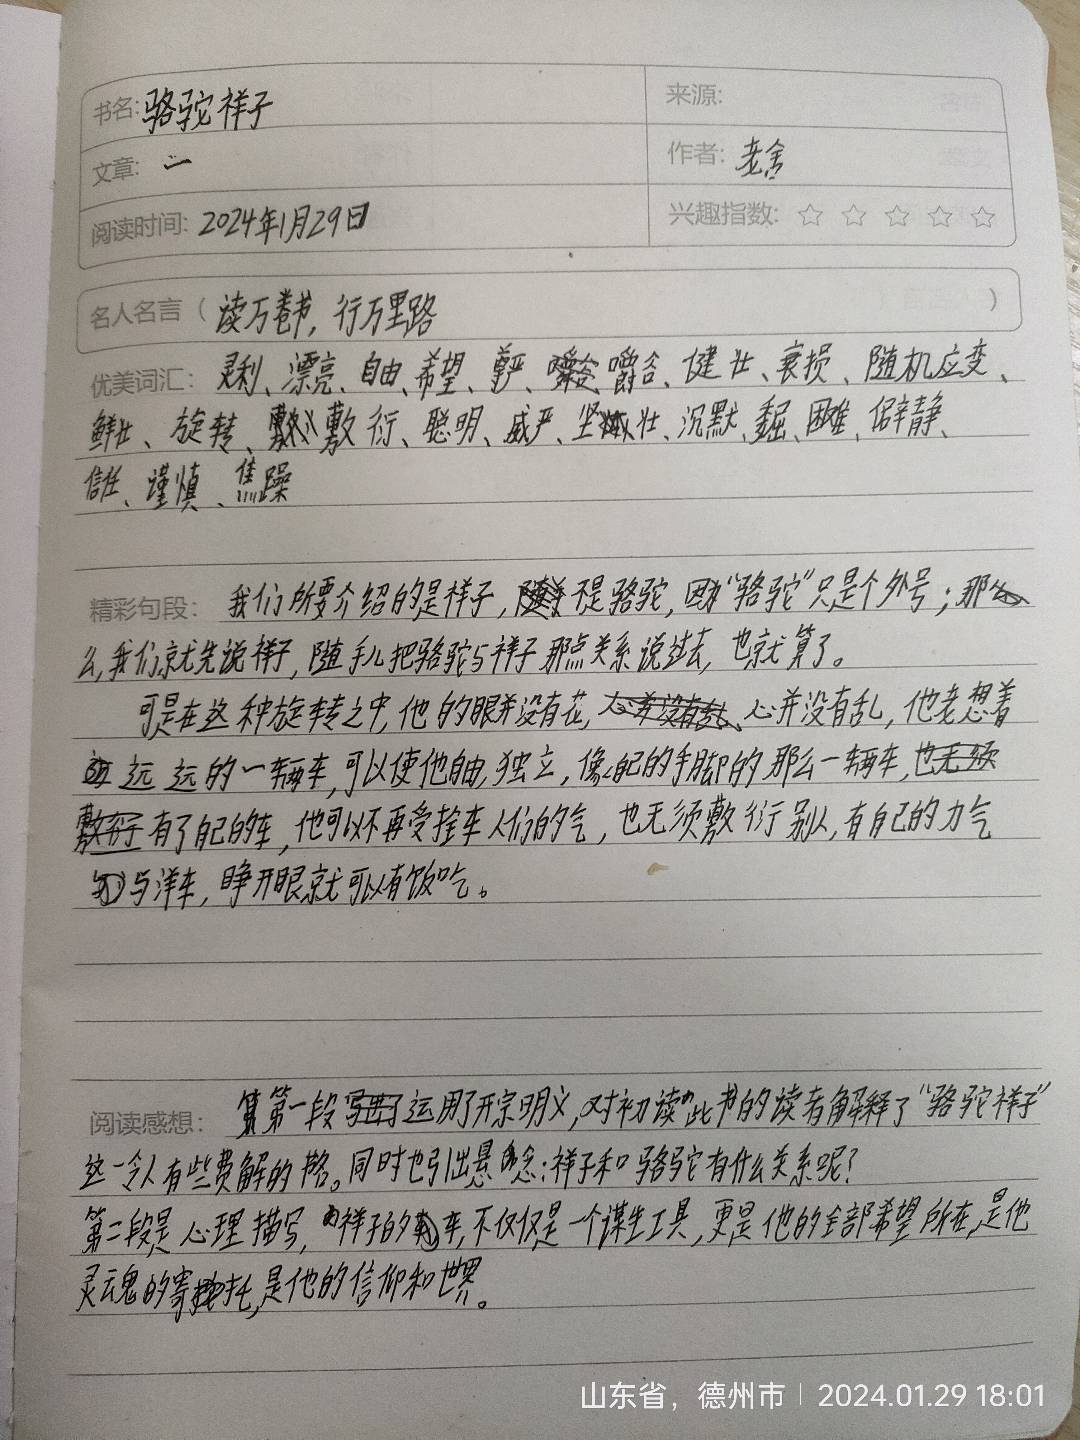 书名:骆驼祥子
来源:
文章: 一
作者: 老舍
阅读时间: 2024年1月29日
兴趣指数: ☆ ☆ ☆ ☆ ☆
名人名言（读万卷书, 行万里路 ）
优美词汇: 灵利、漂亮、自由、希望、尊严、嚼合、健壮、衰损、随机应变、
鲜壮、旋转、敷衍、聪明、威严、坚壮、沉默、困难、僻静、
信任、谨慎、焦躁
精彩句段: 我们所要介绍的是祥子, 不是骆驼, 因为“骆驼”只是个外号; 那
么, 我们就先说祥子, 随手儿把骆驼与祥子那点关系说过去, 也就算了。
可是在这种旋转之中, 他的眼并没有花, 心并没有乱, 他老想着
远远的一辆车, 可以使他自由, 独立, 像自己的手脚的那么一辆车,
有了自己的车, 他可以不再受拴车人们的气, 也无须敷衍别人, 有自己的力气
与洋车, 睁开眼就可以有饭吃。
阅读感想: 第一段运用了开宗明义, 对初读此书的读者解释了“骆驼祥子”
这一令人有些费解的 。同时也引出悬念: 祥子和骆驼有什么关系呢?
第二段是心理描写, 祥子的车, 不仅仅是一个谋生工具, 更是他的全部希望所在, 是他
灵魂的寄托, 是他的信仰和世界。
山东省，德州市 | 2024.01.29 18:01